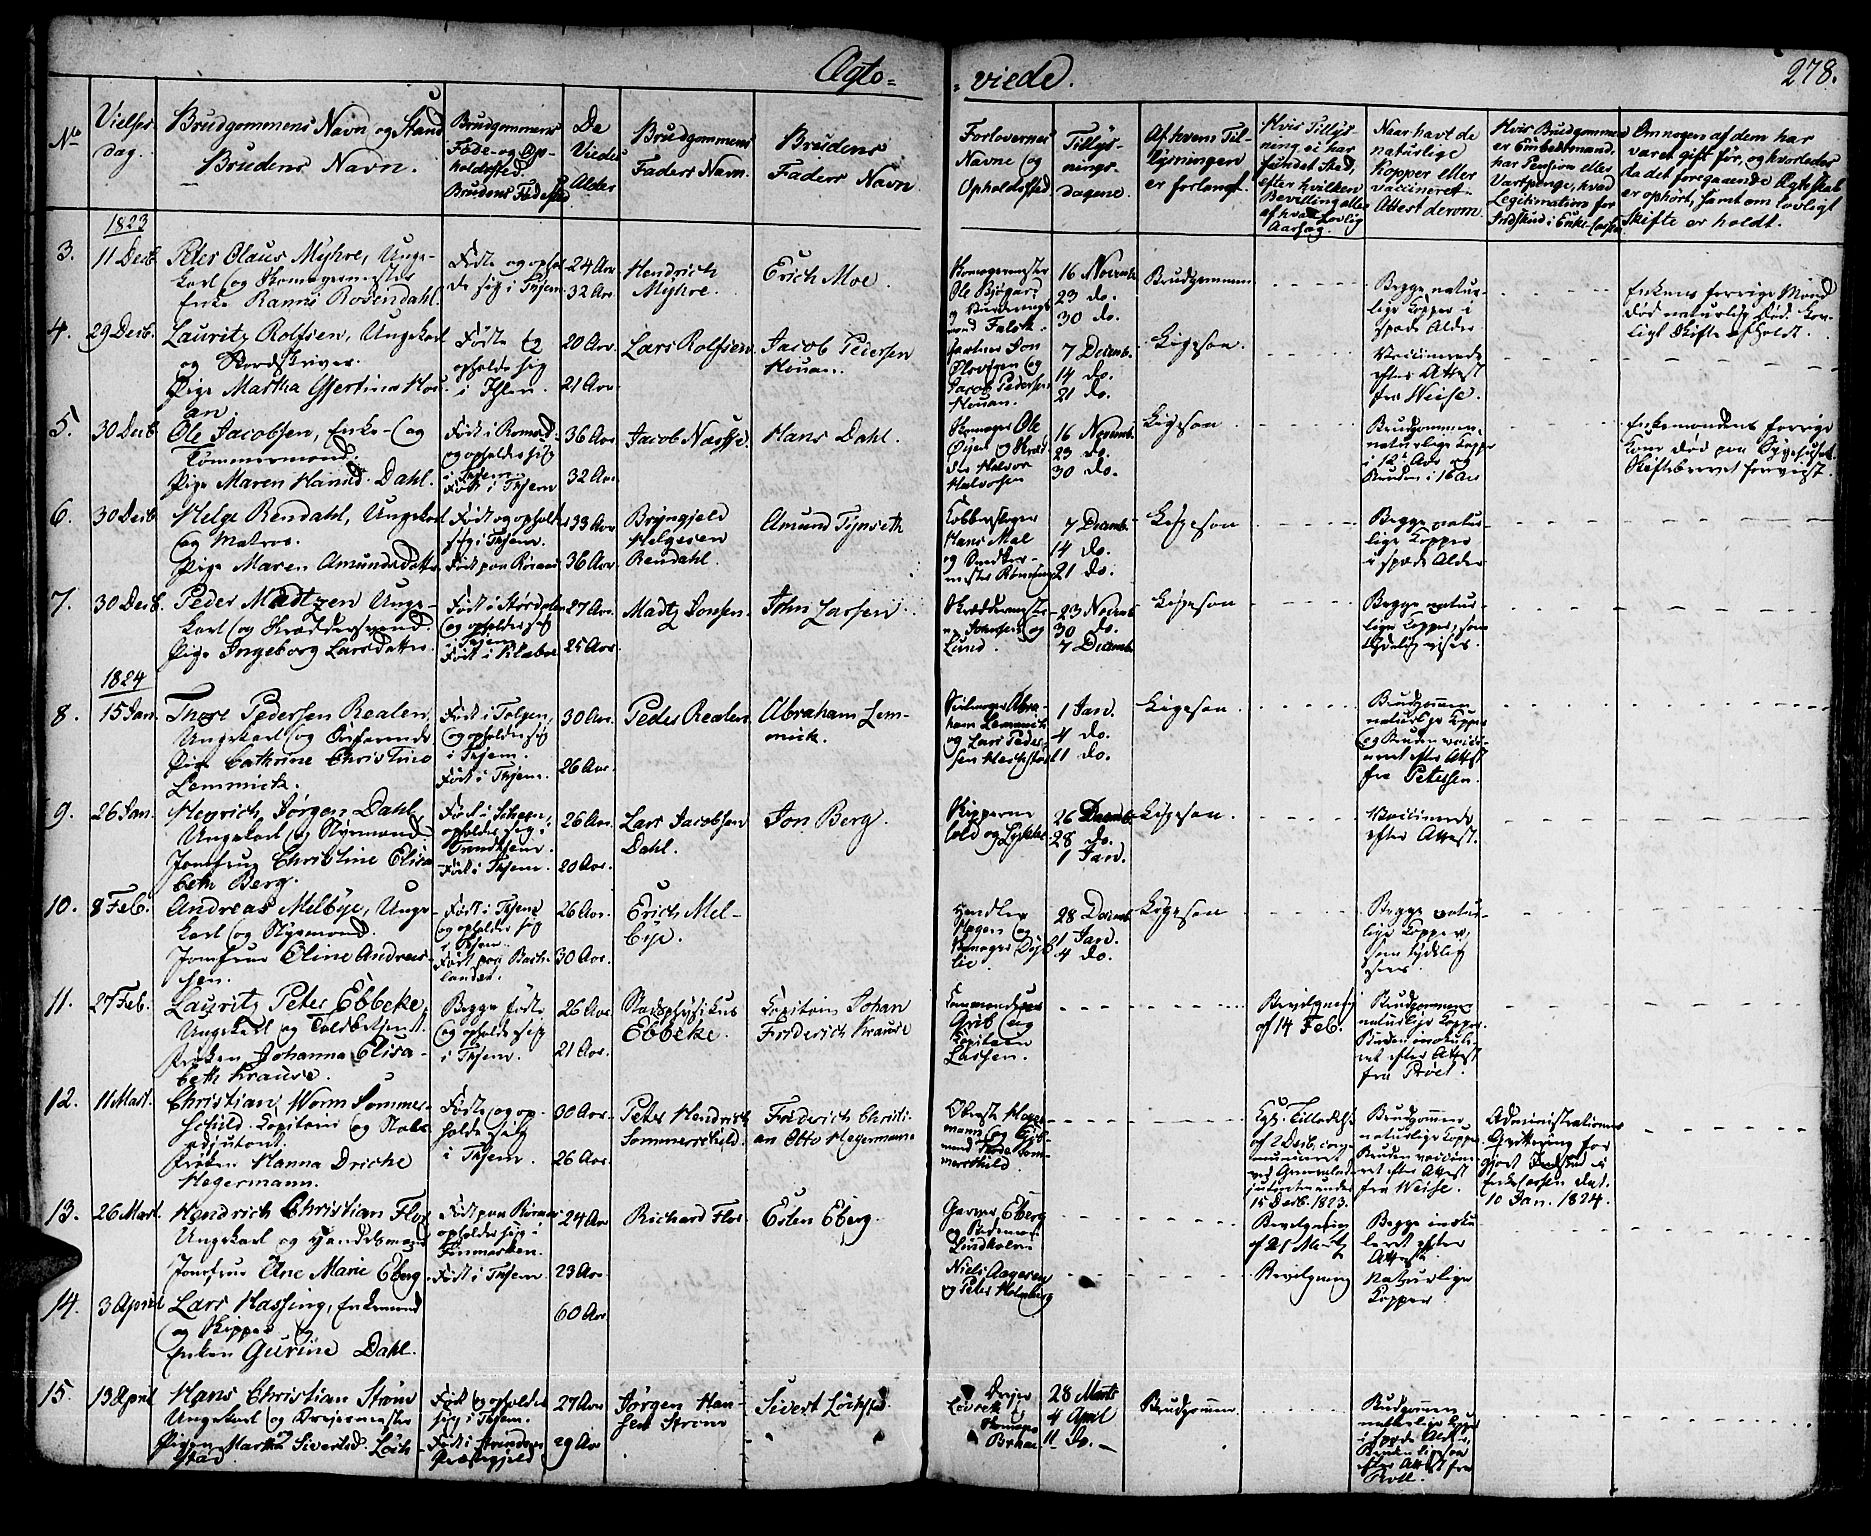 Ægte=
= viede.
278.
No
Vielses
dag.
Brudgommens Navn og Stand
Brudens Navn.
Brudgommens
Føde- og Op-
holdssted.
Brudens Fødested
De
Viedes
Alder
Brudgommens
Faders Navn
Brudens
Faders Navn
Forlovernes
Navne og
Opholdssted
Tillys-
nings-
dagene.
Af hvem Til-
lysningen
er forlangt.
Hvis Tillys-
ning ei har
fundet Sted,
efter hvilken
Bevilling eller
af hvad Lovlig
Aarsag.
Naar havt de
naturlige
Kopper eller
vaccineret
Attest derom.
Hvis Brudgommen
er Embedsmand,
har Pension eller
Vartpenge, hvad
Legitimation for
Indskud i Enke-Cassen
Om nogen af dem har
været gift før, og hvorledes
da det foregaaende Ægteskab
er ophørt, samt om lovligt
Skifte er holdt.
1823
3.
11 Decb
Peter Olaus Myhre, Unge-
karl og Skomagermester
Enke Ranni Rosendahl.
Fødte og ophol-
de sig i Thjem.
24 Aar
32 Aar.
Hendrich
Myhre.
Erich Moe.
Skomagermester
Ole Bøgart
16 Novemb.
23 do.
30 do.
Brudgommen
Begge natur-
lige Kopper i
spæde Alder
Enkens forrige Mand
død naturlig Død. Lov-
ligt Skifte afholdt.
4.
29 Decb.
Lauritz Rolfsen, Ungekarl
og Skrivskriver.
Pige Martha Gjertina Hou-
an.
Fødte og
opholde sig
i Thjem.
20 Aar.
21 Aar.
Lars Rolfsen
Jacob Pedersen
Houan.
Jacob Pedersen
Houan.
7 Decemb.
14 do.
21 do.
Ligesaa.
Vaccinerede
efter Attest
fra Weise.
5.
30 Decb
Ole Jacobsen, Enke- og
Tømmermand.
Pige Maren Hansd. Dahl.
Født i Romsd.
og opholder sig
i Thjem.
Født i Thjem
36 Aar
32 Aar.
Jacob Næsse.
Hans Dahl.
Halvor
Halvorsen
16 Novemb.
23 do.
30 do.
Ligesaa
Brudgommen
naturlige Kopper
i 12te Aar og
Bruden i 16 Aar
Enkemandens forrige
Kone død paa Sygehuset
Skiftebrevet foreviist.
6.
30 Decb
Helge Rendahl, Ungekarl
og Matros.
Pige Maren Amundsdatter
Født og ophold.
sig i Thjem.
Født paa Røraas
33 Aar
36 Aar.
Bryngjeld
Helgesen
Rendahl.
Amund Tynseth
Kobberslager
Hans Mal
7 Decemb.
14 do.
21 do.
Ligesaa
Begge natur-
lige Kopper
i spæde Alder
7.
30 Decb.
Peder Madtzen Unge-
karl og Skrædersvend.
Pige Ingeborg Larsdatter.
Født i Størdalen
og opholder sig
i Thjem.
Født i Klæboe
27 Aar.
25 Aar.
Madtz Jonsen
John Larsen
Skræddermester-
ne Johnsen og
Lund.
23 Novemb
30 do.
7 Decemb
Ligesaa
Begge natur-
lige Kopper, som
tydelig vises.
1824
8.
15 Jan.
Thore Pedersen Realen,
Ungekarl og
Pige Cathrine Christine
Lemmich.
Født i Tolgen,
og opholder sig
i Thjem.
Født i Thjem.
30 Aar.
26 Aar.
Peder Realen
Abraham Lem-
mich.
Abra-
ham Lemmich
og Lars Peder-
sen
1 Jan.
4 do.
11 do.
Ligesaa.
Brudgommen
naturlige Kopper
og Bruden vacci-
neret efter Attest
fra Petersen.
9.
26 Jan.
Henrich Jørgen Dahl,
Ungekarl og Styrmand
Jomfrue Christine Elisa
beth Berg.
opholder sig i
Trondhjem.
Født i Thjem.
26 Aar.
20 Aar.
Lars Jacobsen
Dahl.
Jon Berg.
Skipperne
Lold og Lykke
26 Decemb.
28 do.
1 Jan.
Ligesaa
Vaccinerede
efter Attest.
10.
8 Feb.
Andreas Melbye, Unge-
karl og Styrmand.
Jomfrue Eline Andreas-
sen.
Født i Thjem
og opholder sig
i Thjem.
Født paa Bach-
landet.
26 Aar.
30 Aar.
Erich Mel-
bye.
Handler
Hagen og
28 Decemb.
1 Jan.
4 do.
Ligesaa
Begge natur-
lige Kopper,
som tydelig
sees.
11.
27 Feb.
Lauritz Peter Ebbeke,
Ungekarl og Toldbetjent.
Frøken Johanna Elisa-
beth Krause.
Begge fødte
og opholde sig
i Thjem.
26 Aar.
21 Aar.
Stadsphysikus
Ebbeke.
Capitain Johan
Friderich Krause
Grib og
Capitain
Lassen.
Bevilgning
af 14 Feb.
Brudgommen
naturlige Kopper.
Bruden inokule-
ret efter Attest
fra Proel.
12.
11 Mart.
Christian Worm Sommer-
schield. Capitain og Stabs
adjutant.
Frøken Hanna Driche
Hegermann.
Fødte og op-
holde sig
i Thjem.
30 Aar.
26 Aar.
Peter Hendrich
Sommerschield.
Friderich Christi-
an Otto Hegermann
Oberst Heger-
mann og
Som-
merschield.
Kgl. Tilladelse
af 2 Decb., com-
municeret
ved Generalad-
jutanten under
15 Decb. 1823.
Brudgommen
naturlige Kopper
Bruden vaccine-
ret efter Attest
fra Weise.
Administrationens
Qvittering for
gjort Indskud i
Enkecassen dat.
10 Jan. 1824.
13.
26 Mart.
Hendrich Christian Flor
Ungekarl og Handelsmand
Jomfrue Ane Marie Eberg.
Født paa Røraas
opholder sig i
Finmarken.
Født i Thjem.
24 Aar
23 Aar
Richard Flor.
Esten Eberg.
Garver Eberg
og
Lindholm
Bevilgning
af 21 Martz
Begge inoku-
leret efter
Attest
14.
3 April
Lars Hassing, Enkemand
og Skipper og
Enken Gurine Dahl.
60 Aar
Niels Aagesen
og Peter Holmberg
Bevilgning
Naturlige
Kopper
15.
13 April
Hans Christian Strøm
Ungekarl og Drejermester
Pigen Martha Sivertsd. Löch-
stad.
Født og opholder
sig i Thjem.
Født i Strinden
Præstegjeld
27 Aar
29 Aar
Jørgen Han-
sen Strøm
Sivert Löchstad
Drejer
28 Marts
4 April
11 do.
Brudgommen.
Brudgommen
naturlige Kopper
i spæde Alder,
Bruden ligesaa
efter Attest fra
Roll.